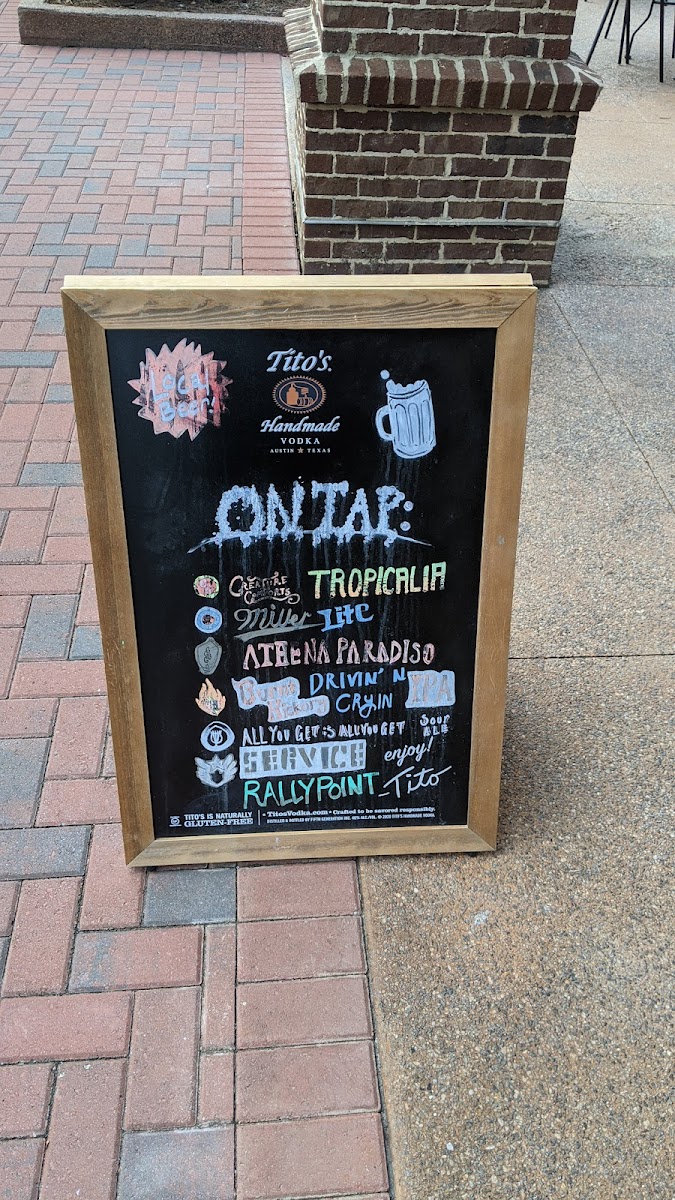 Local
Beer!
Tito's
Handmade
VODKA
AUSTIN ★ TEXAS
ON TAP:
CREATURE
COMFORTS
TROPICALIA
Miller Lite
ATHENA PARADISO
DRIVIN' N
CRYIN
IPA
ALL YOU GET IS ALL YOU GET
SOUR
ALE
SERVICE
enjoy!
RALLYPOINT
-Tito
TITO'S IS NATURALLY
GLUTEN-FREE
• TitosVodka.com • Crafted to be savored responsibly.
DISTILLED & BOTTLED BY FIFTH GENERATION INC. 40% ALC./VOL. © 2020 TITO'S HANDMADE VODKA.